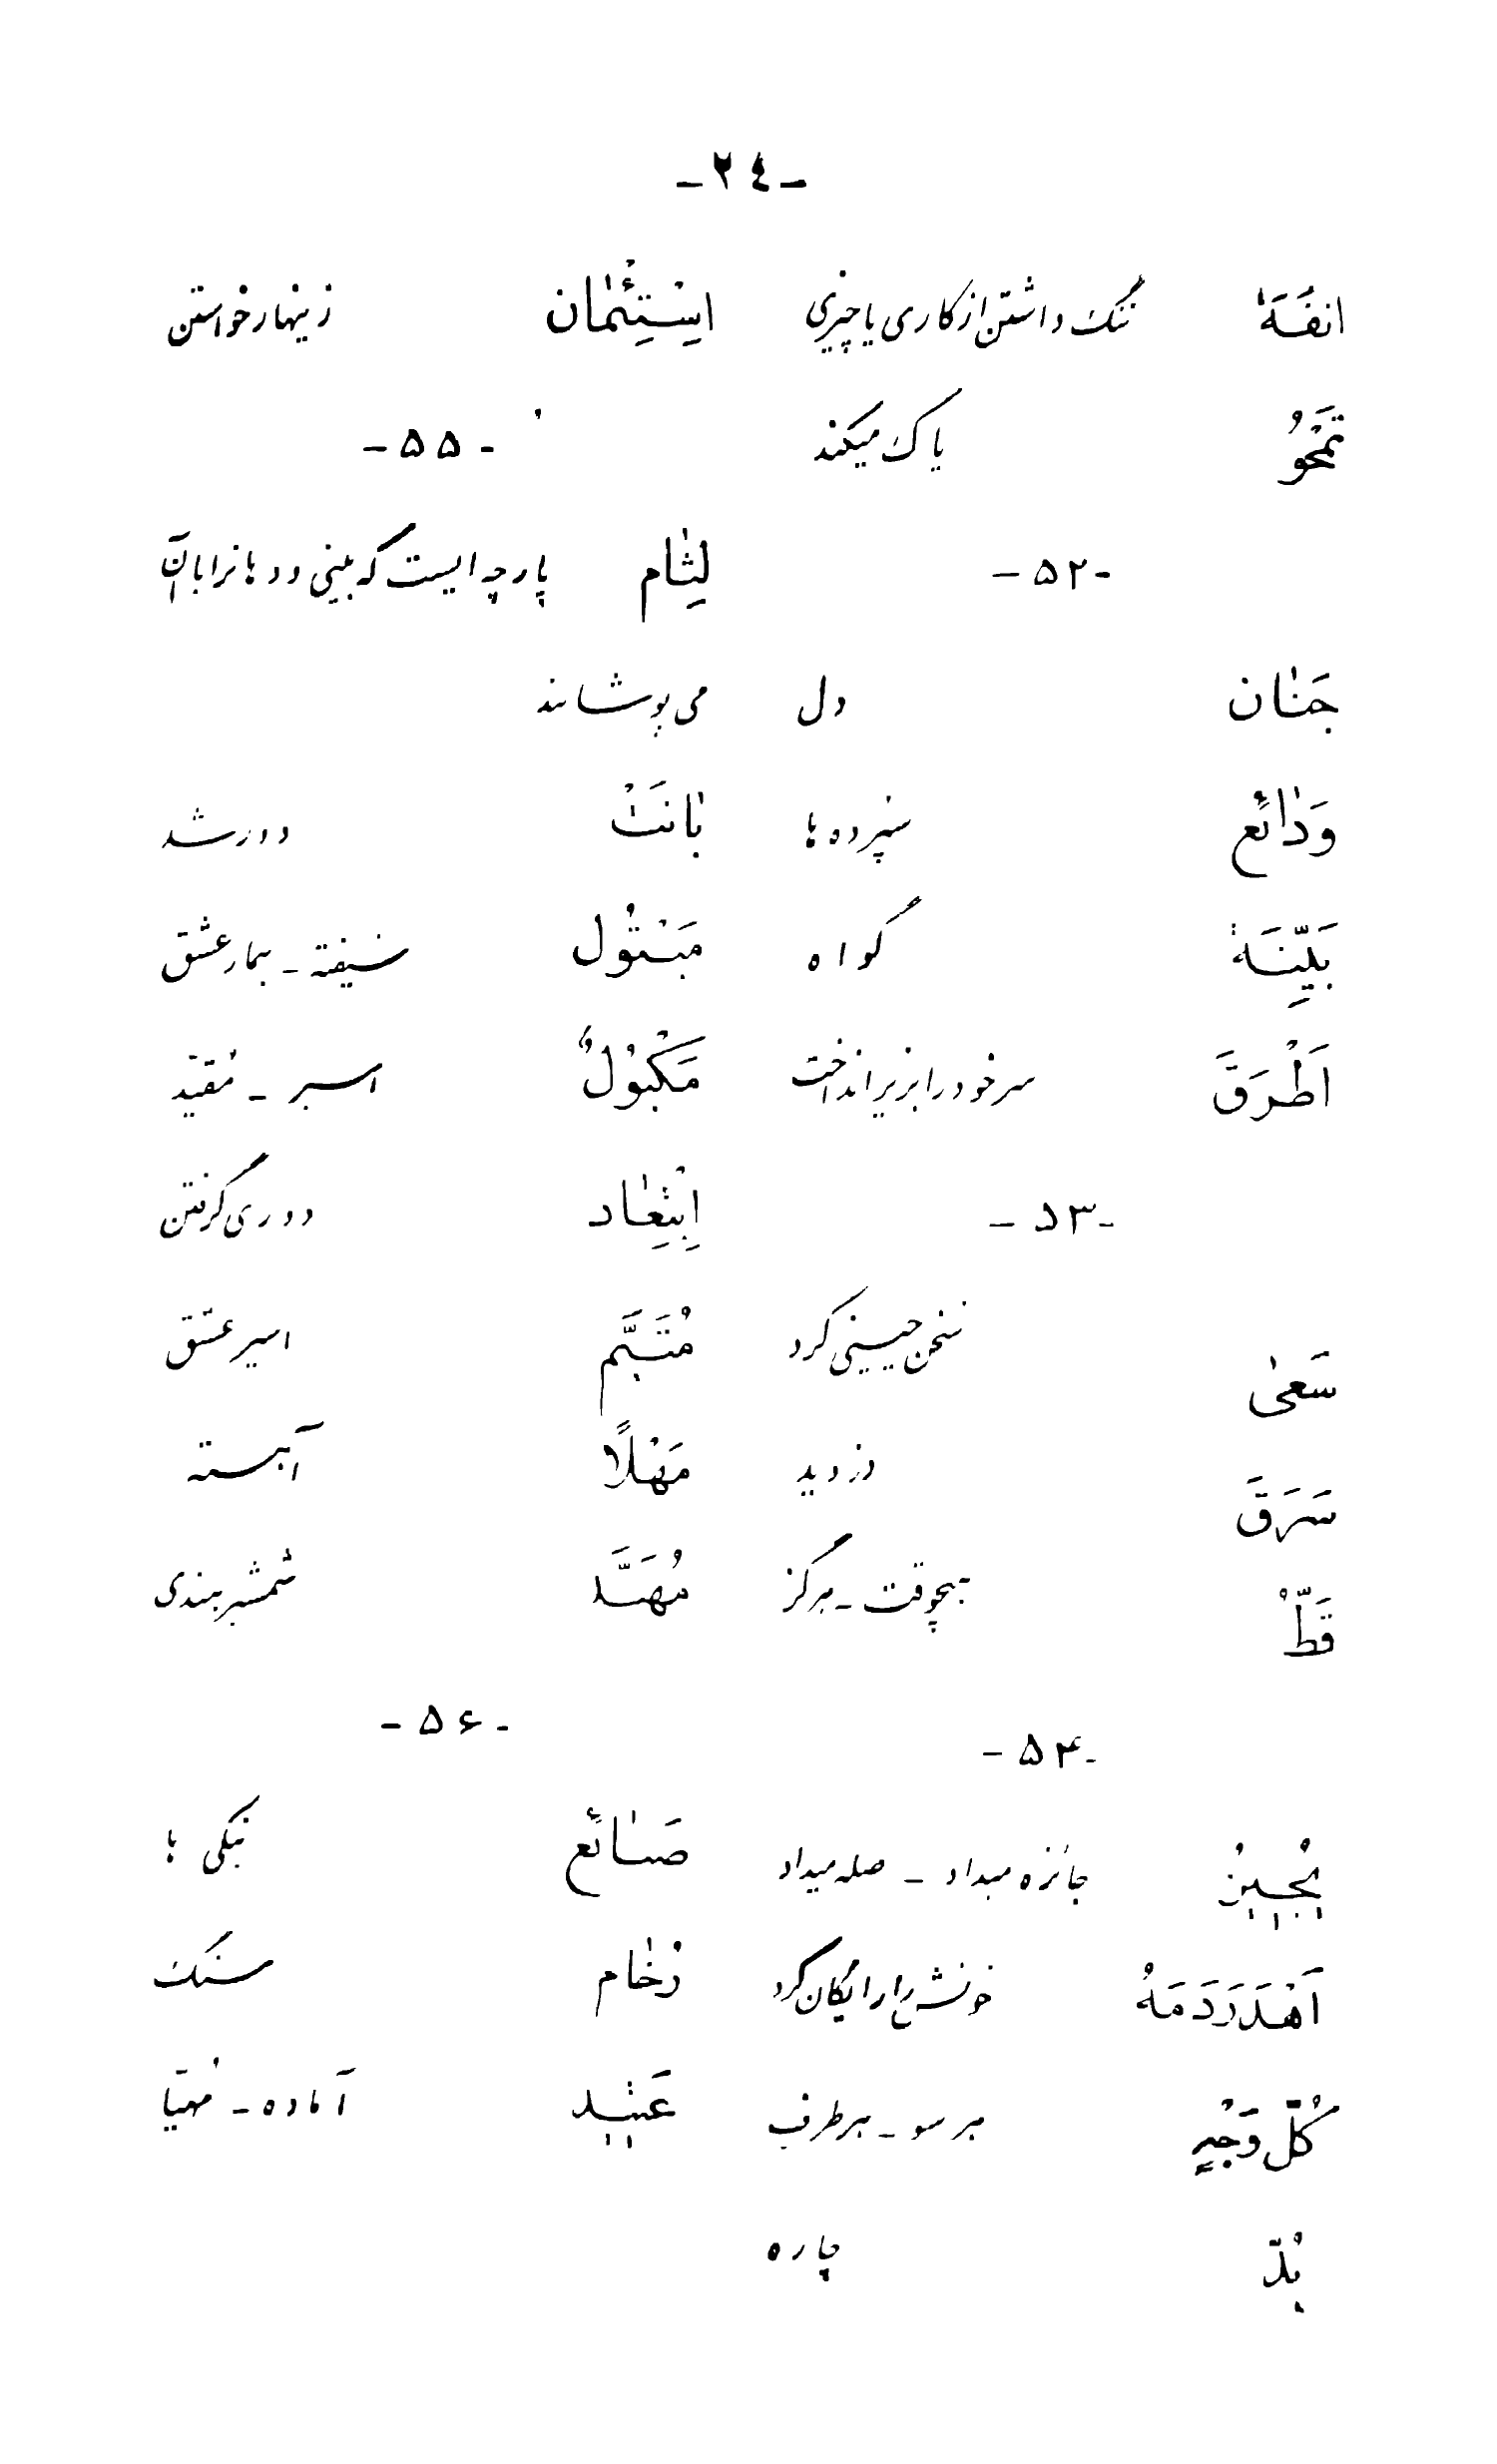 -۲٤-
انفَةً ننگ داشتن از کاری یا چیزی
تَمْحُو پاک میکند
-۵۲-
جَنٰان دل
وَدٰائَع سپرده ها
بَیِّنَة گواه
اَطْرَقَ سر خود را بزیر انداخت
-۵۳-
سَعیٰ سخن چینی کرد
سَرَقَ دزدید
قَطّْ هیچوقت - هرگز
-۵۴-
یُجیزُ جائزه میداد - صله میداد
اَهْدَرَدَمَهُ خونش را رایگان کرد
کُلّ وَجْهٍ هر سو - هر طرف
بُدّ چاره
اِسْتِئْمٰان زینهار خواستن
-۵۵-
لِثٰام پارچه ایست که بینی و دهانرا بآن
می پوشانند
بٰانَتْ دور شد
مَبْتُول شیفته - بیمار عشق
مَکْبُوْلٌ اسیر - مُقیّد
اِبْتِعٰاد دوری گرفتن
مُتَیَّم اسیر عشق
مَهْلًا آهسته
مُهَنَّد شمشیر هندی
-۵۶-
صَنٰائَع نیکی ها
رُخٰام سنگ
عَتید آماده - مُهیّا